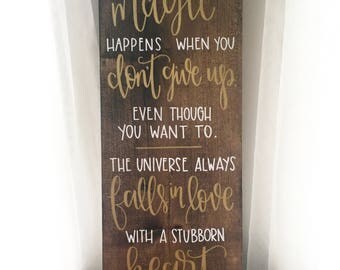 magic
HAPPENS WHEN YOU
don't give up.
EVEN THOUGH
YOU WANT TO.
THE UNIVERSE ALWAYS
falls in love
WITH A STUBBORN
heart